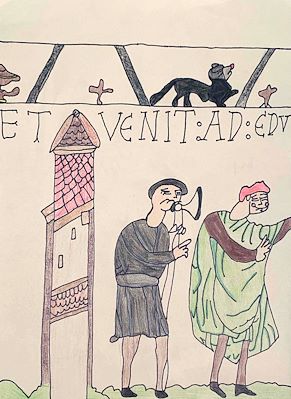 ET VENIT:AD:EDV